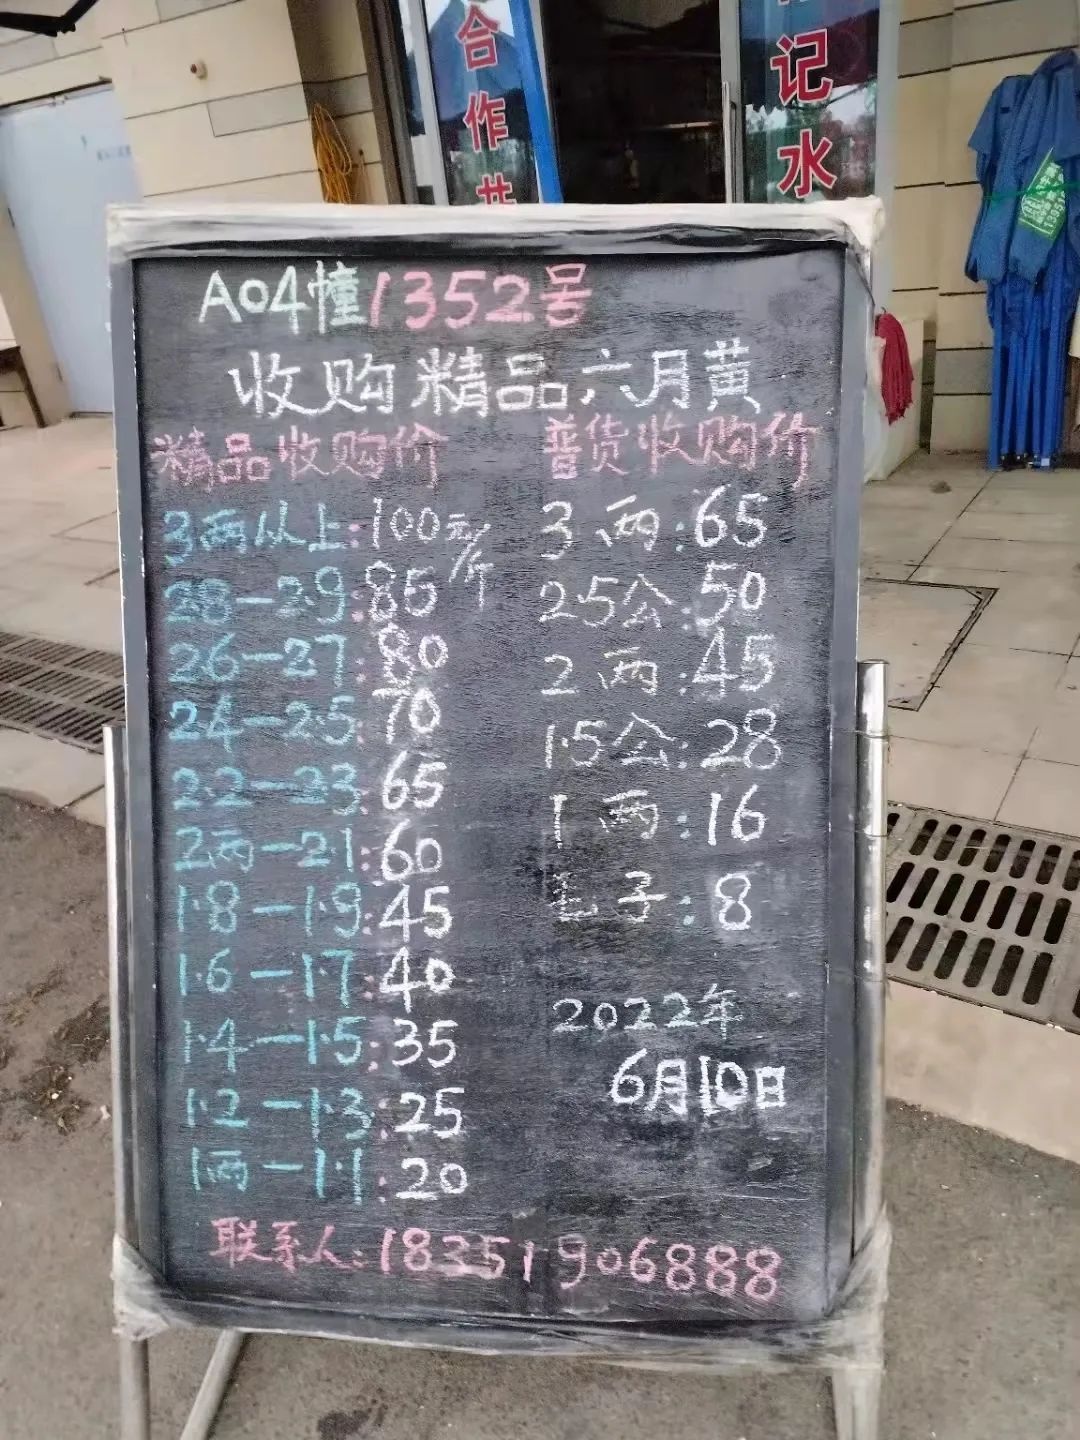 合作共
记水
A04幢1352号
收购精品六月黄
精品收购价
3两从上:100元/斤
28-2.9:85
26-27:80
24-2.5:70
2.2-23:65
2两-21:60
1.8-1.9:45
1.6-1.7:40
1.4-1.5:35
1.2-1.3:25
1两-1.1:20
普货收购价
3两:65
2.5公:50
2两:45
1.5公:28
1两:16
毛子:8
2022年
6月10日
联系人:18351906888